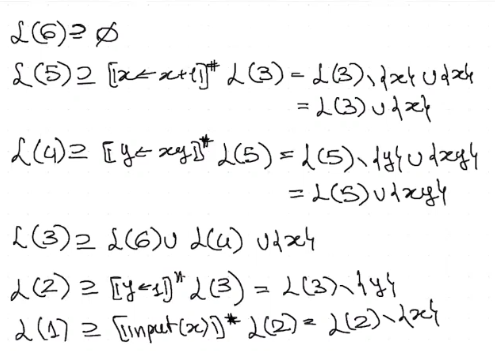 L(6) ⊇ ∅
L(5) ⊇ [[x ← x+1]]# L(3) = L(3) \ {x} ∪ {x}
= L(3) ∪ {x}
L(4) ⊇ [[y ← xy]]# L(5) = L(5) \ {y} ∪ {xy}
= L(5) ∪ {xy}
L(3) ⊇ L(6) ∪ L(4) ∪ {x}
L(2) ⊇ [[y ← 1]]# L(3) = L(3) \ {y}
L(1) ⊇ [[input(x)]]# L(2) = L(2) \ {x}